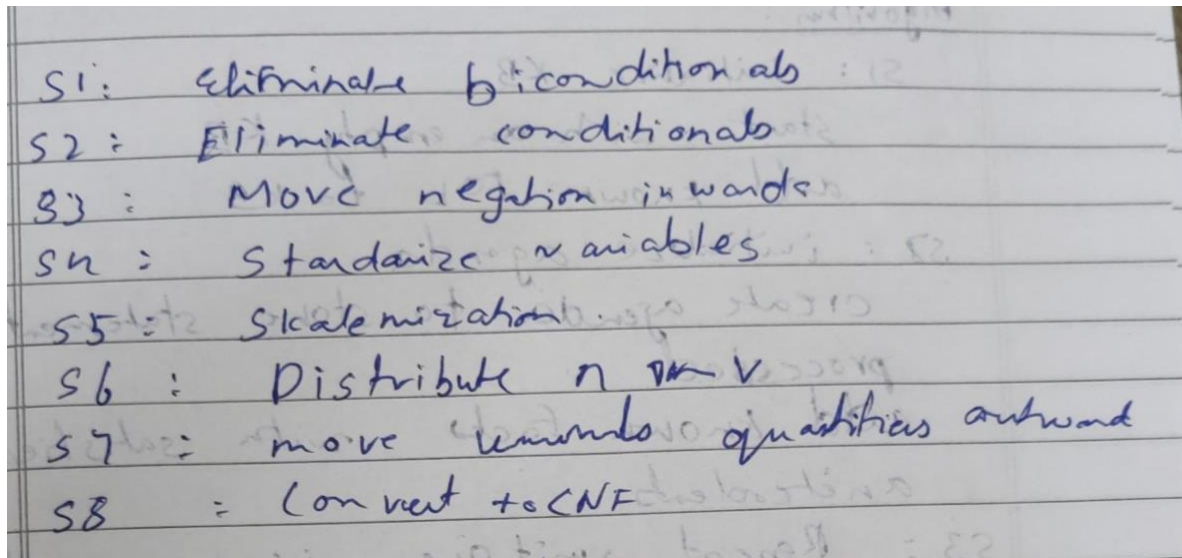 S1: Eliminate biconditionals
S2: Eliminate conditionals
S3: Move negation inwards
S4: Standarize variables
S5: Skalemization.
S6: Distribute ∩ V
S7: move quantifiers outward
S8: Convert to CNF